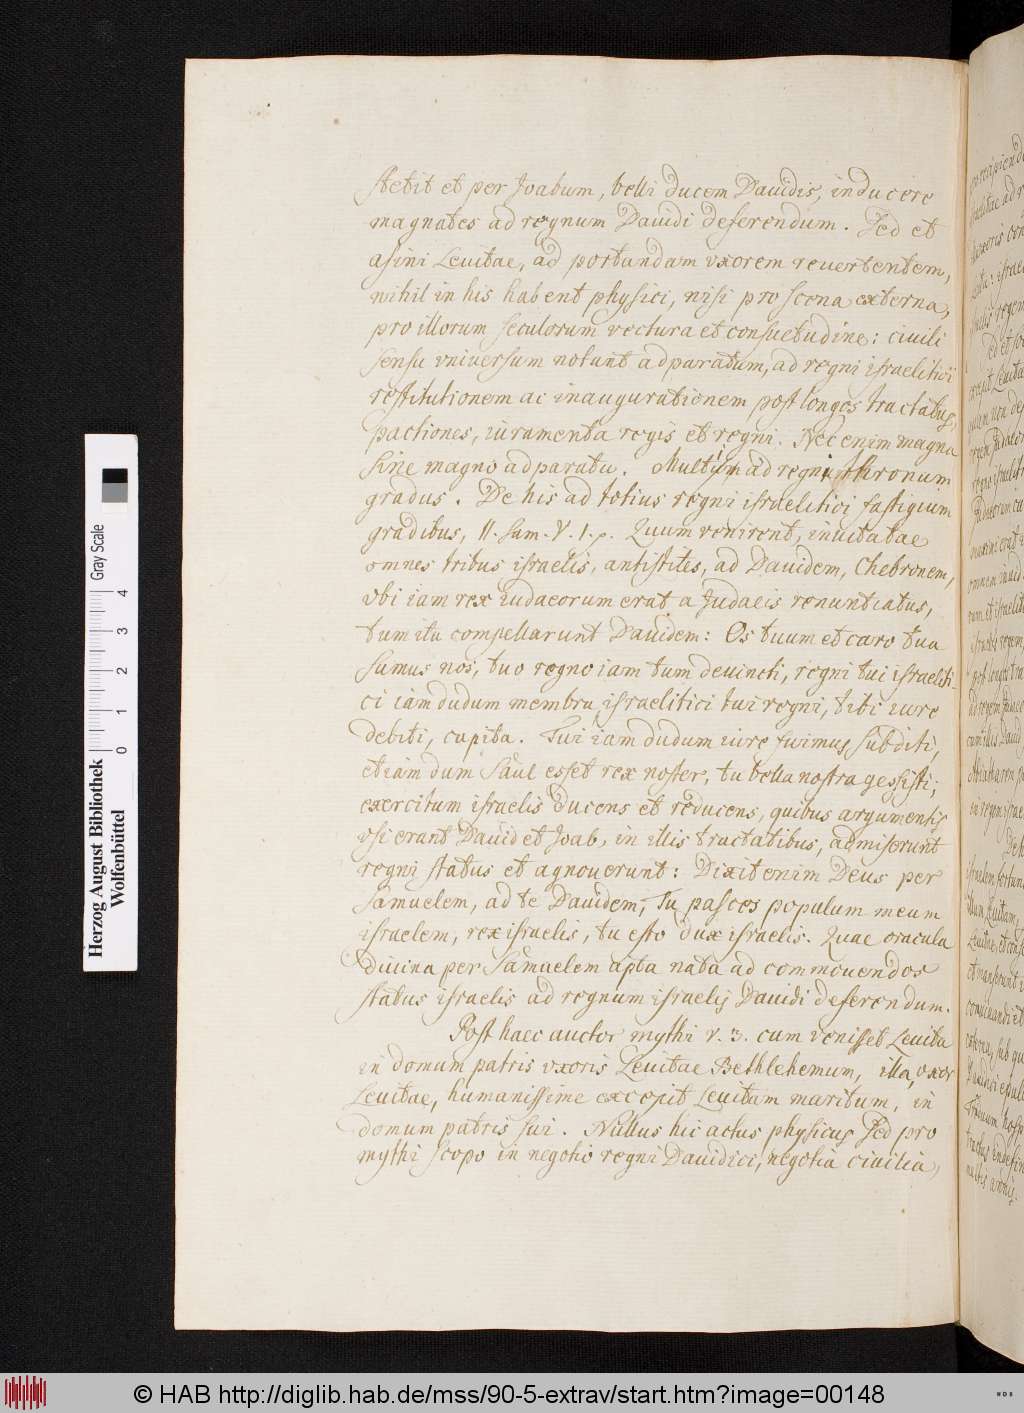 stetit et per Joabum, belli ducem Dauidis, inducere
magnates ad regnum Dauidi deferendum. Sed et
asini Leuitae, ad portandam vxorem reuertentem,
nihil in his habent physici, nisi pro scena externa,
pro illorum seculorum vectura et consuetudine: ciuili
sensu vniuersum notant adparatum, ad regni israelitici
restitutionem ac inaugurationem post longos tractatus,
pactiones, iuramenta regis et regni. Nec enim magna
sine magno adparatu. Multi ad regni thronum
gradus. De his ad totius regni israelitici fastigium
gradibus, II. Sam. V. 1. p. Quum venirent, inuitatae
omnes tribus israelis, antistites, ad Dauidem, Chebronem,
vbi iam rex iudaeorum erat a Judaeis renuntiatus,
tum ita compellarunt Dauidem: Os tuum et caro tua
sumus nos, tuo regno iam tum deuincti, regni tui israeliti-
ci iam dudum membra, israelitici tui regni, tibi iure
debiti, capita. Tui iam dudum iure fuimus subditi,
etiam dum Saul esset rex noster, tu bella nostra gessisti;
exercitum israelis ducens et reducens, quibus argumentis
vsi erant Dauid et Joab, in illis tractatibus, admiserunt
regni status et agnouerunt: Dixit enim Deus per
Samuelem, ad te Dauidem, Tu pasces populum meum
israelem, rex israelis, tu esto dux israelis. Quae oracula
diuina per Samuelem apta nata ad commouendos
status israelis ad regnum israelis Dauidi deferendum.
Post haec auctor mythi v. 3. cum venisset Leuita
in domum patris vxoris Leuitae Bethlehemum, illa, vxor
Leuitae, humanissime excepit Leuitam maritum, in
domum patris sui. Nullus hic actus physicus Sed pro
mythi scopo in negotio regni Dauidici, negotia ciuilia,
Herzog August Bibliothek
Wolfenbüttel
Gray Scale
0 1 2 3 4
© HAB http://diglib.hab.de/mss/90-5-extrav/start.htm?image=00148